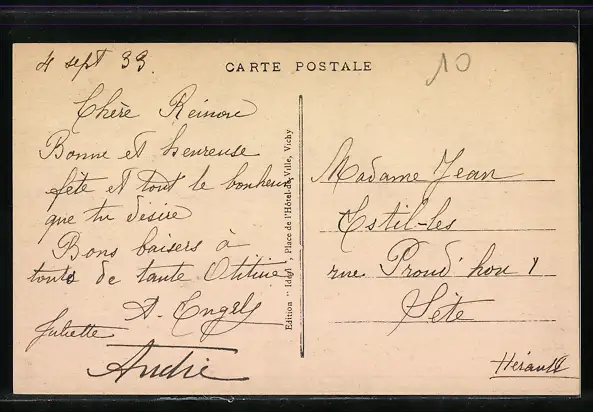 4 sept 33.
CARTE POSTALE
10
Chère
Bonne et heureuse
fête et tout le bonheur
que tu désire
Bons baisers à
touts de tante
A. Engel
Juliette
André
Edition "Idéal", Place de l'Hôtel-de-Ville, Vichy
Madame Jean
Estil-les
rue Proud'hon 1
Sète
Hérault